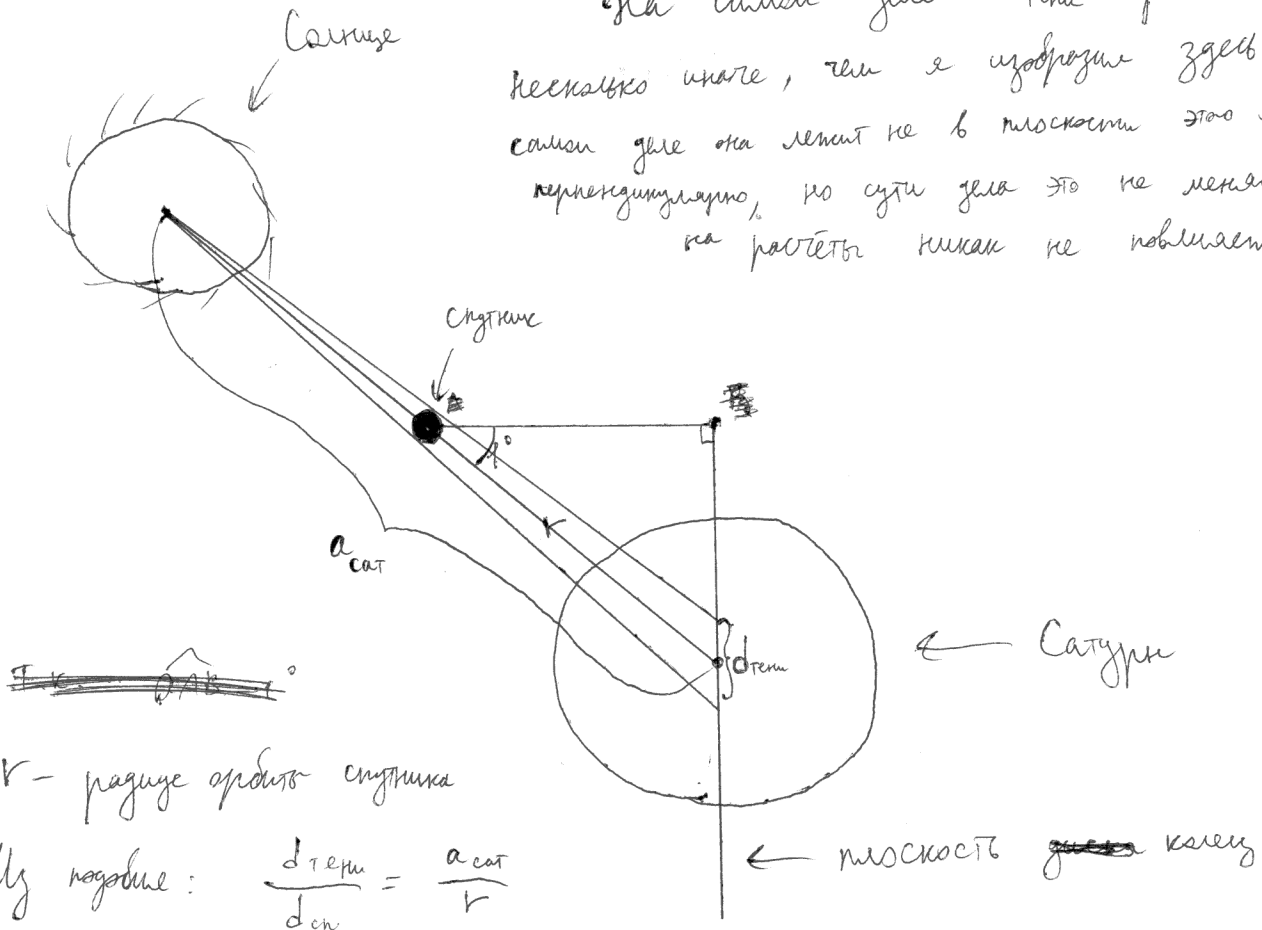 Солнце
На самом деле тень
несколько иначе, чем я изобразил здесь
самом деле она лежит не в плоскости этого
перпендикулярно, но сути дела это не меня
на расчёты никак не повлияет
спутник
1°
r
a сат
d тени
Сатурн
r – радиус орбиты спутника
плоскость колец
Из подобия: d тени / d сп = a сат / r